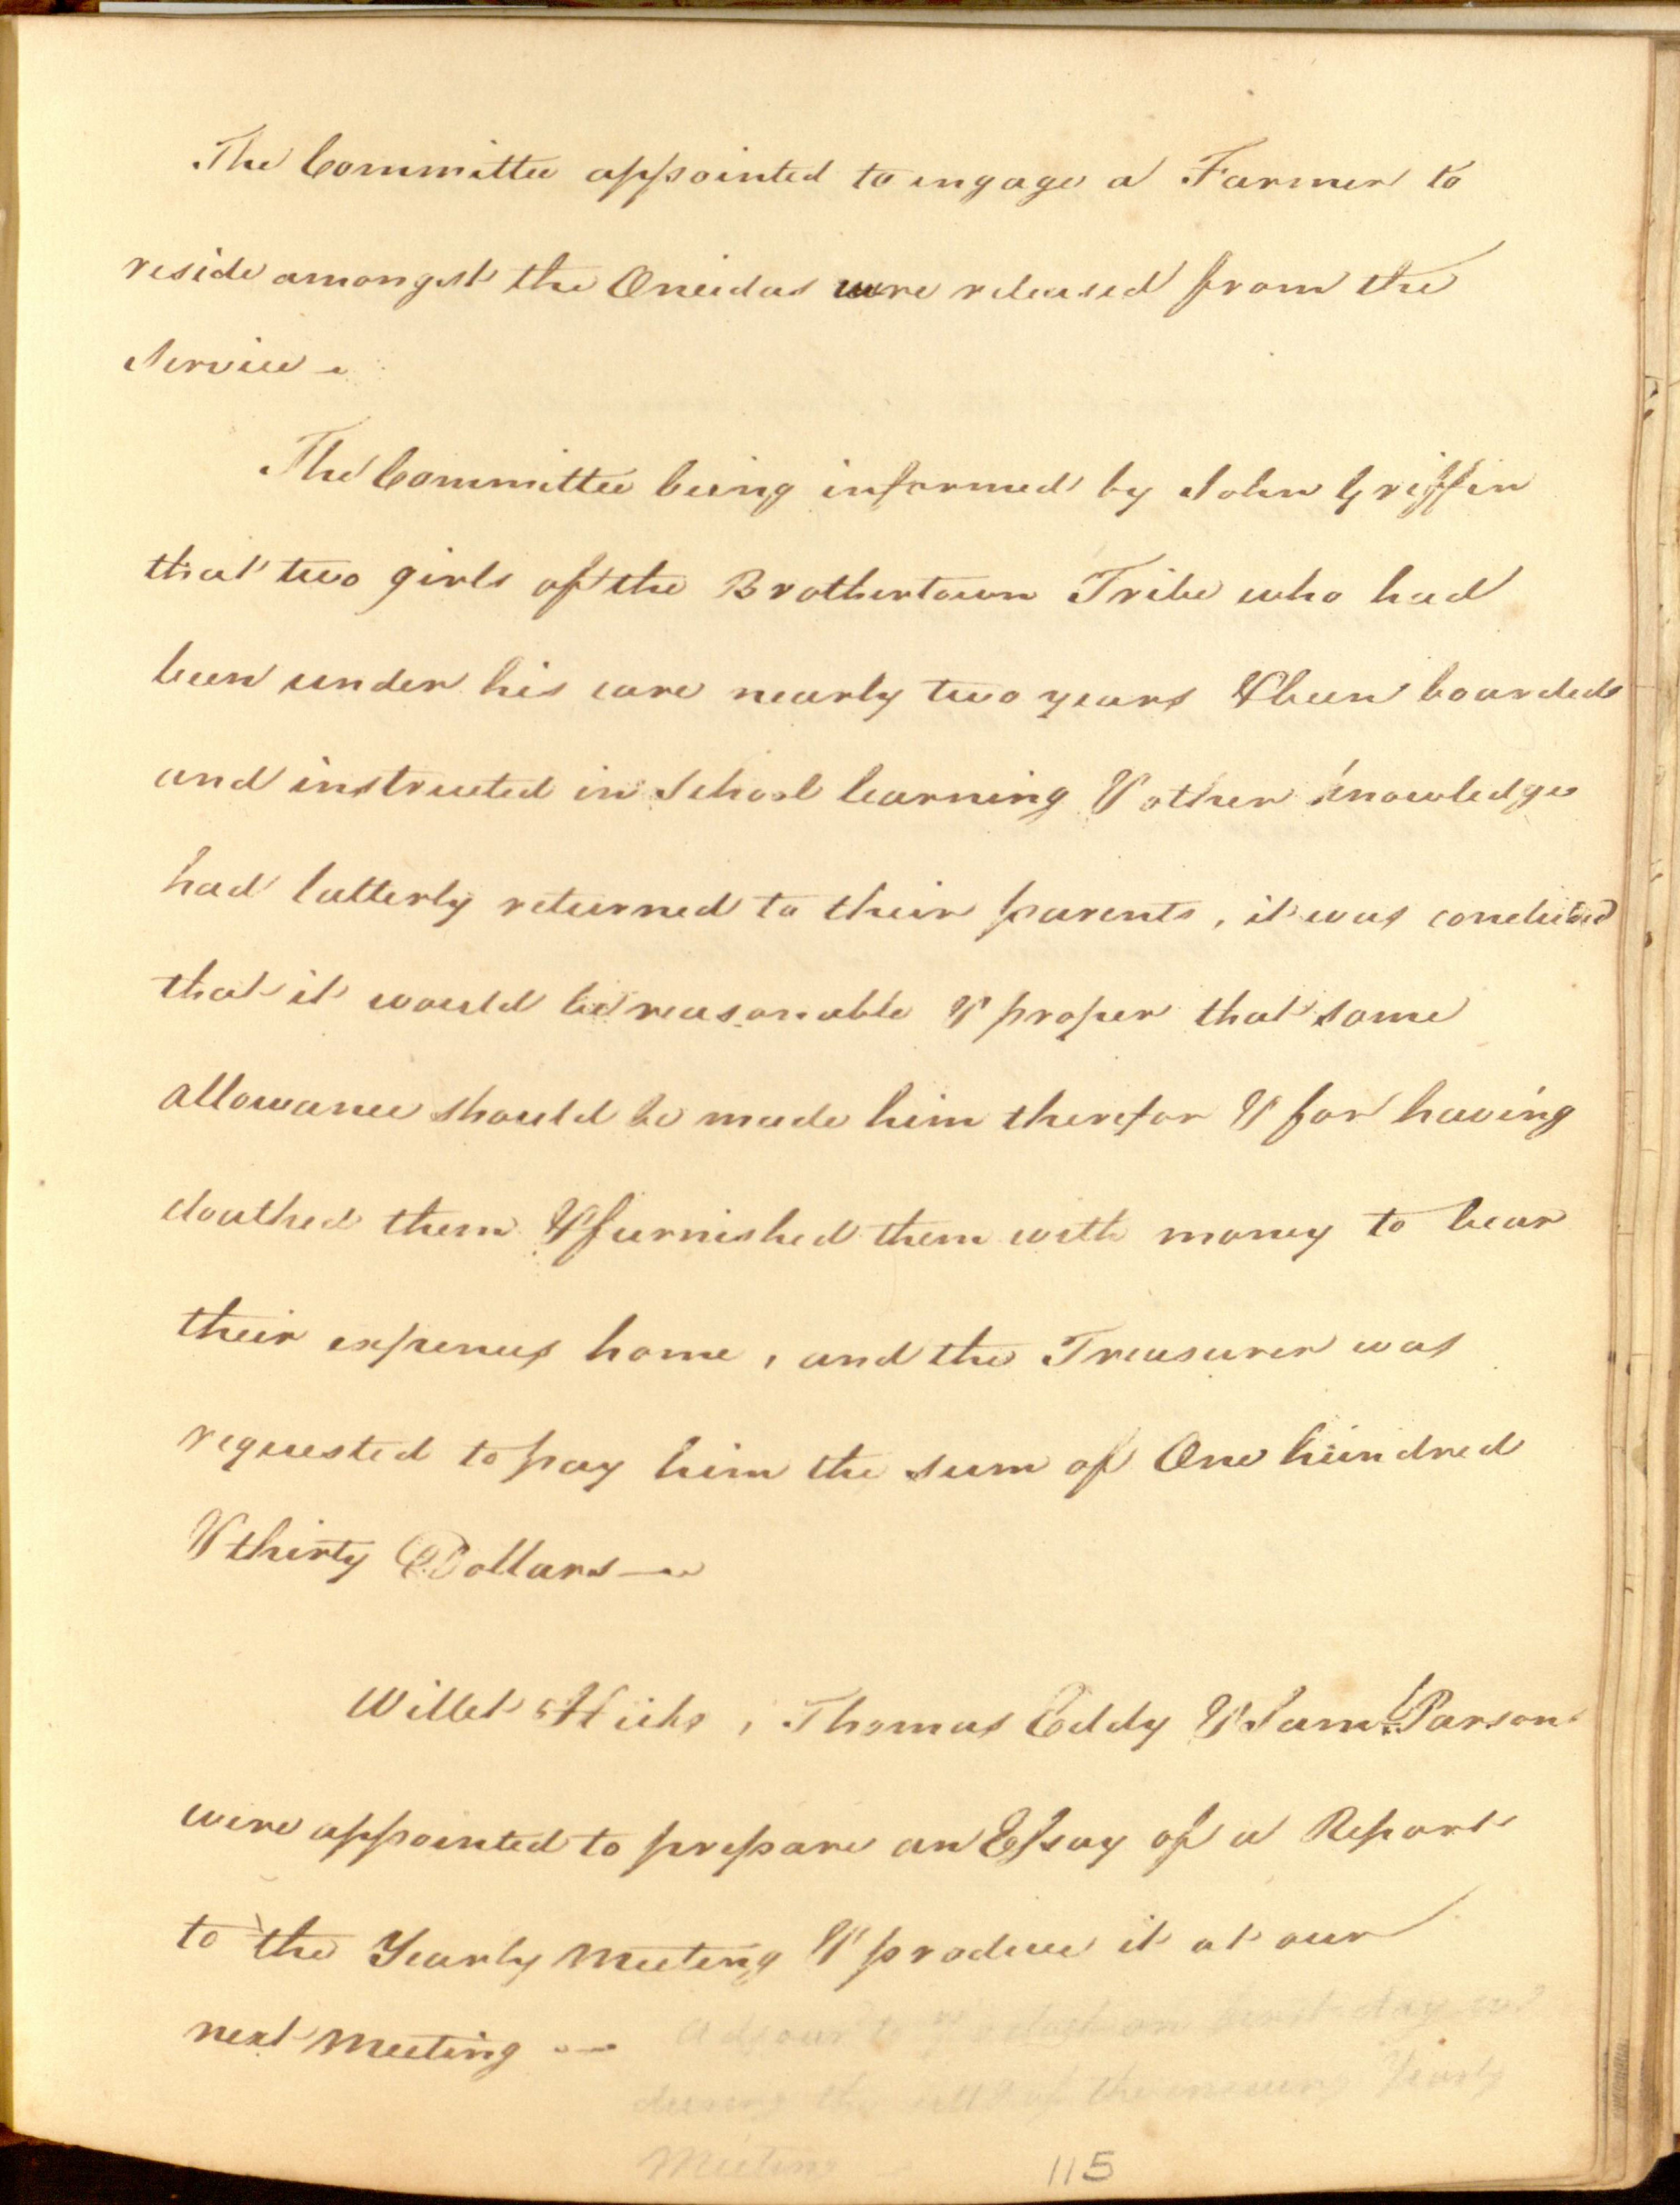 The Committee appointed to engage a Farmer to
reside amongst the Oneidas were released from the
Service
The Committee being informed by John Griffin
that two girls of the Brothertown Tribe who had
been under his care nearly two years & been boarded
and instructed in School learning & other knowledge
had latterly returned to their parents, it was concluded
that it would be reasonable & proper that some
allowance should be made him therefor & for having
cloathed them & furnished them with money to bear
their expences home, and the Treasurer was
requested to pay him the sum of One hundred
& thirty Dollars —
Willet Hicks, Thomas Eddy & Saml. Parsons
were appointed to prepare an Essay of a Report
to the Yearly Meeting & produce it at our
next Meeting —
Adjourd to on first day
during the of the ensuing Yearly
Meeting
115